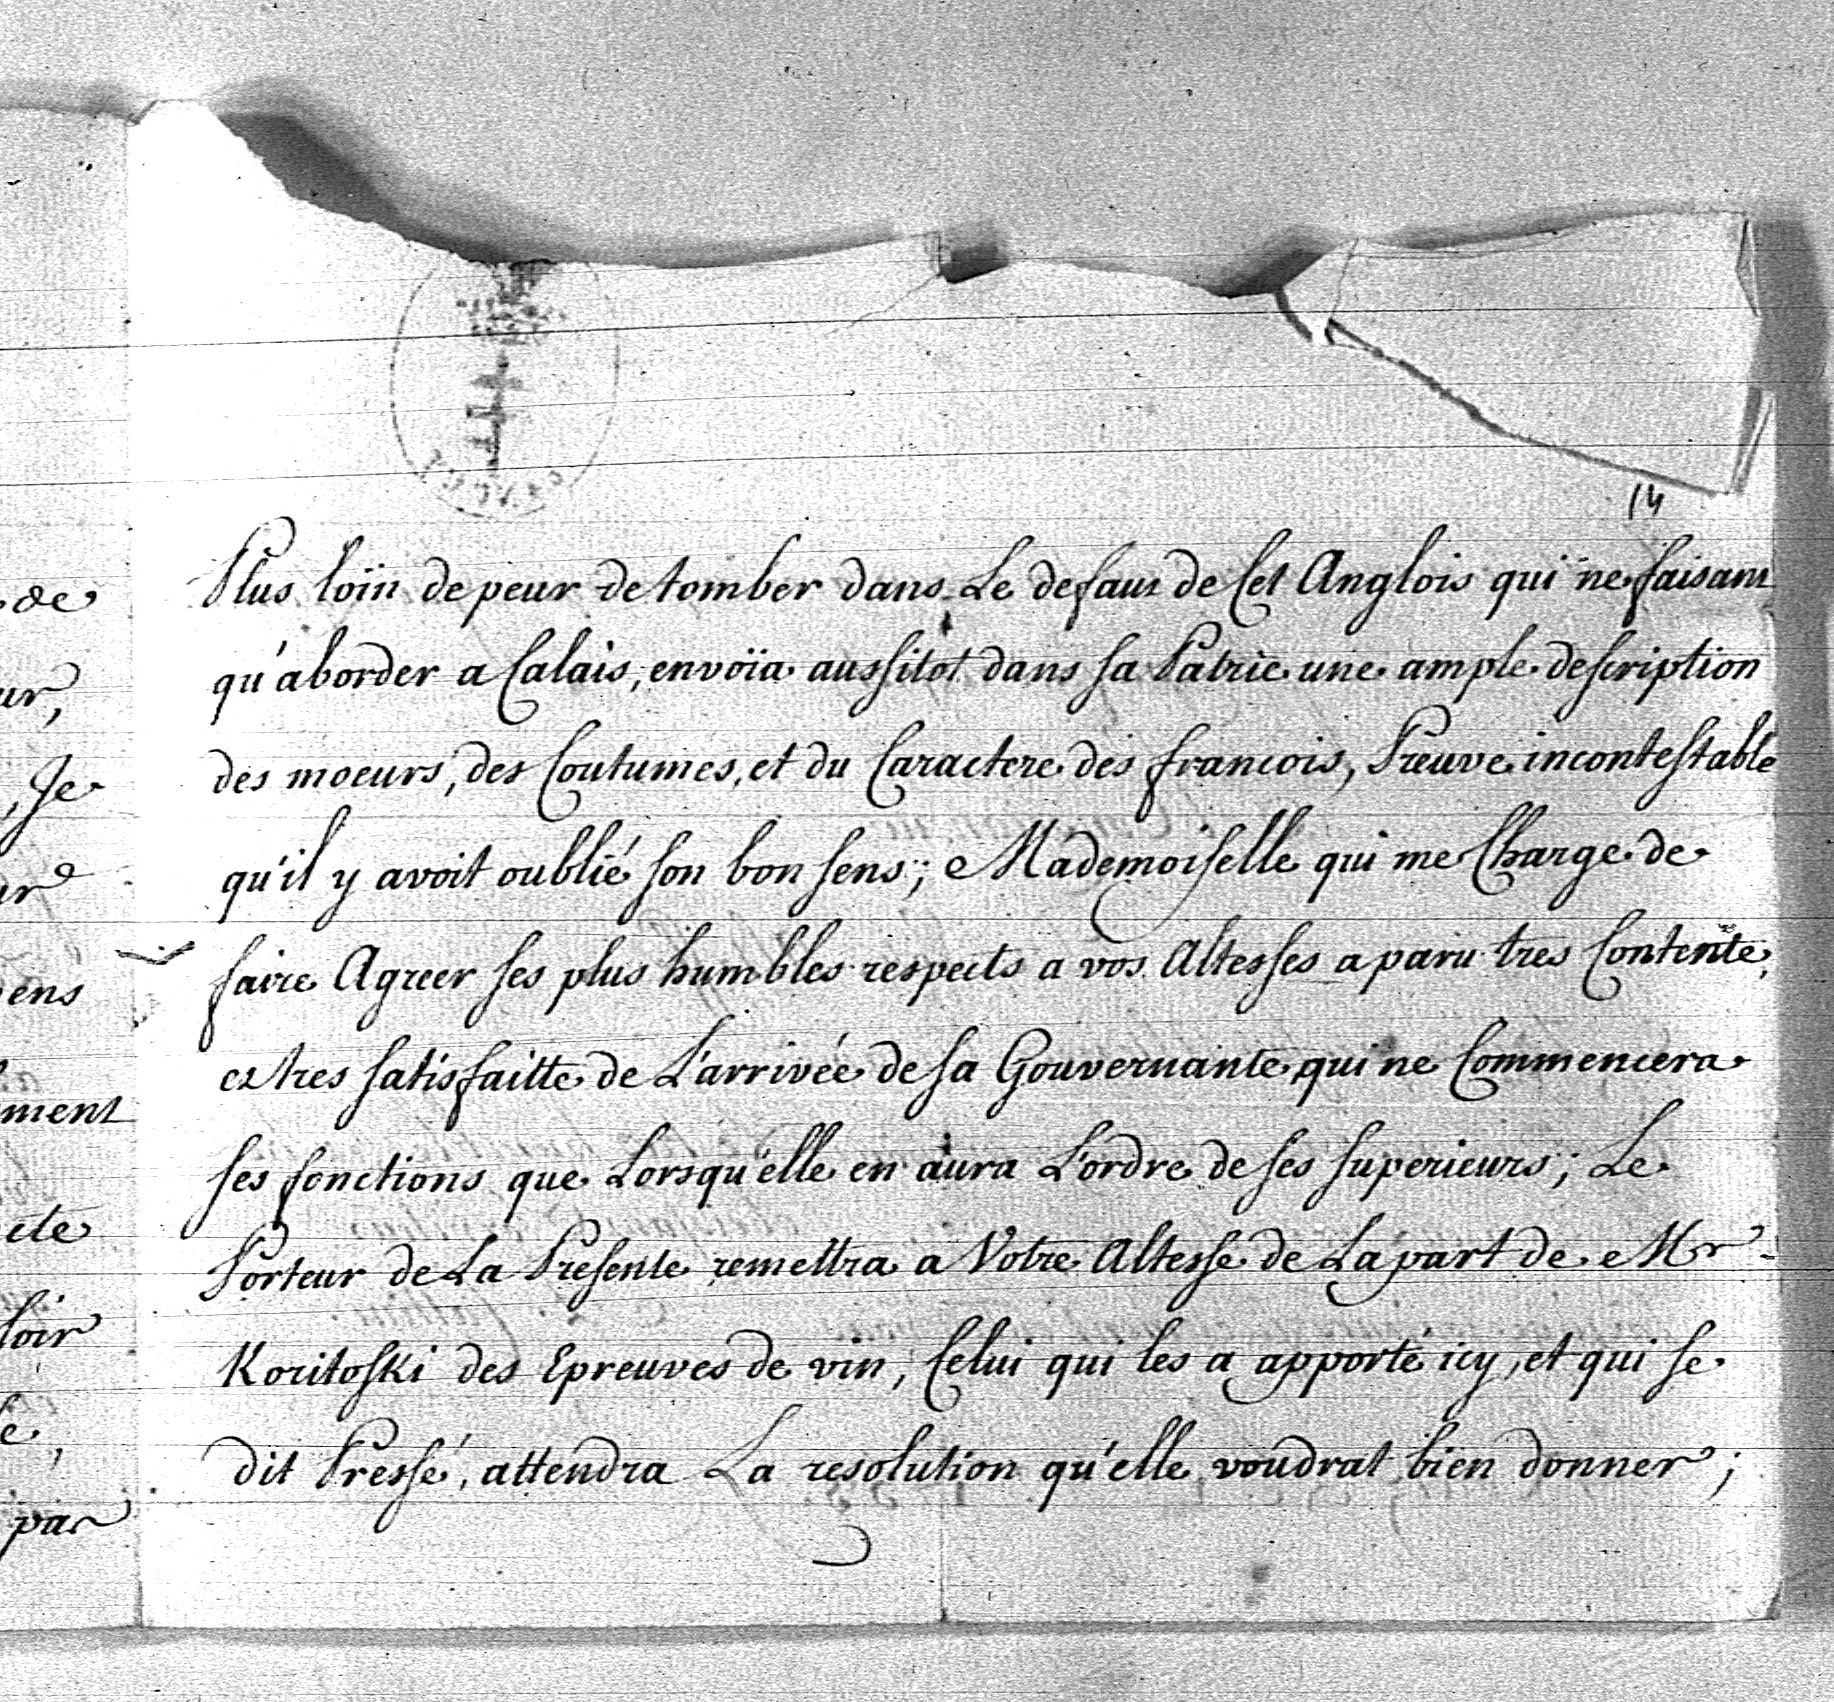 14
Plus loïn de peur de tomber dans Le defaut de Cet Anglois qui ne faisant
qu'aborder a Calais, envoïa aussitot dans sa Patrie une ample description
des moeurs, des Coutumes, et du Caractere des francois, Preuve incontestable
qu'il y avoit oublié son bon sens; Mademoiselle qui me Charge de
faire Agreer ses plus humbles respects a vos Altesses a paru tres Contente,
et tres satisfaitte de L'arrivée de sa Gouvernante, qui ne Commencera
ses fonctions que Lorsqu'elle en aura L'ordre de ses superieurs; Le
Porteur de La Presente remettra a Votre Altesse de La part de Mr
Koritoski des Epreuves de vin, Celui qui les a apporté icy, et qui se
dit Pressé, attendra La resolution qu'elle voudrat bien donner;
de
ur,
, Je
ens
ment
cte
loir
e,
par